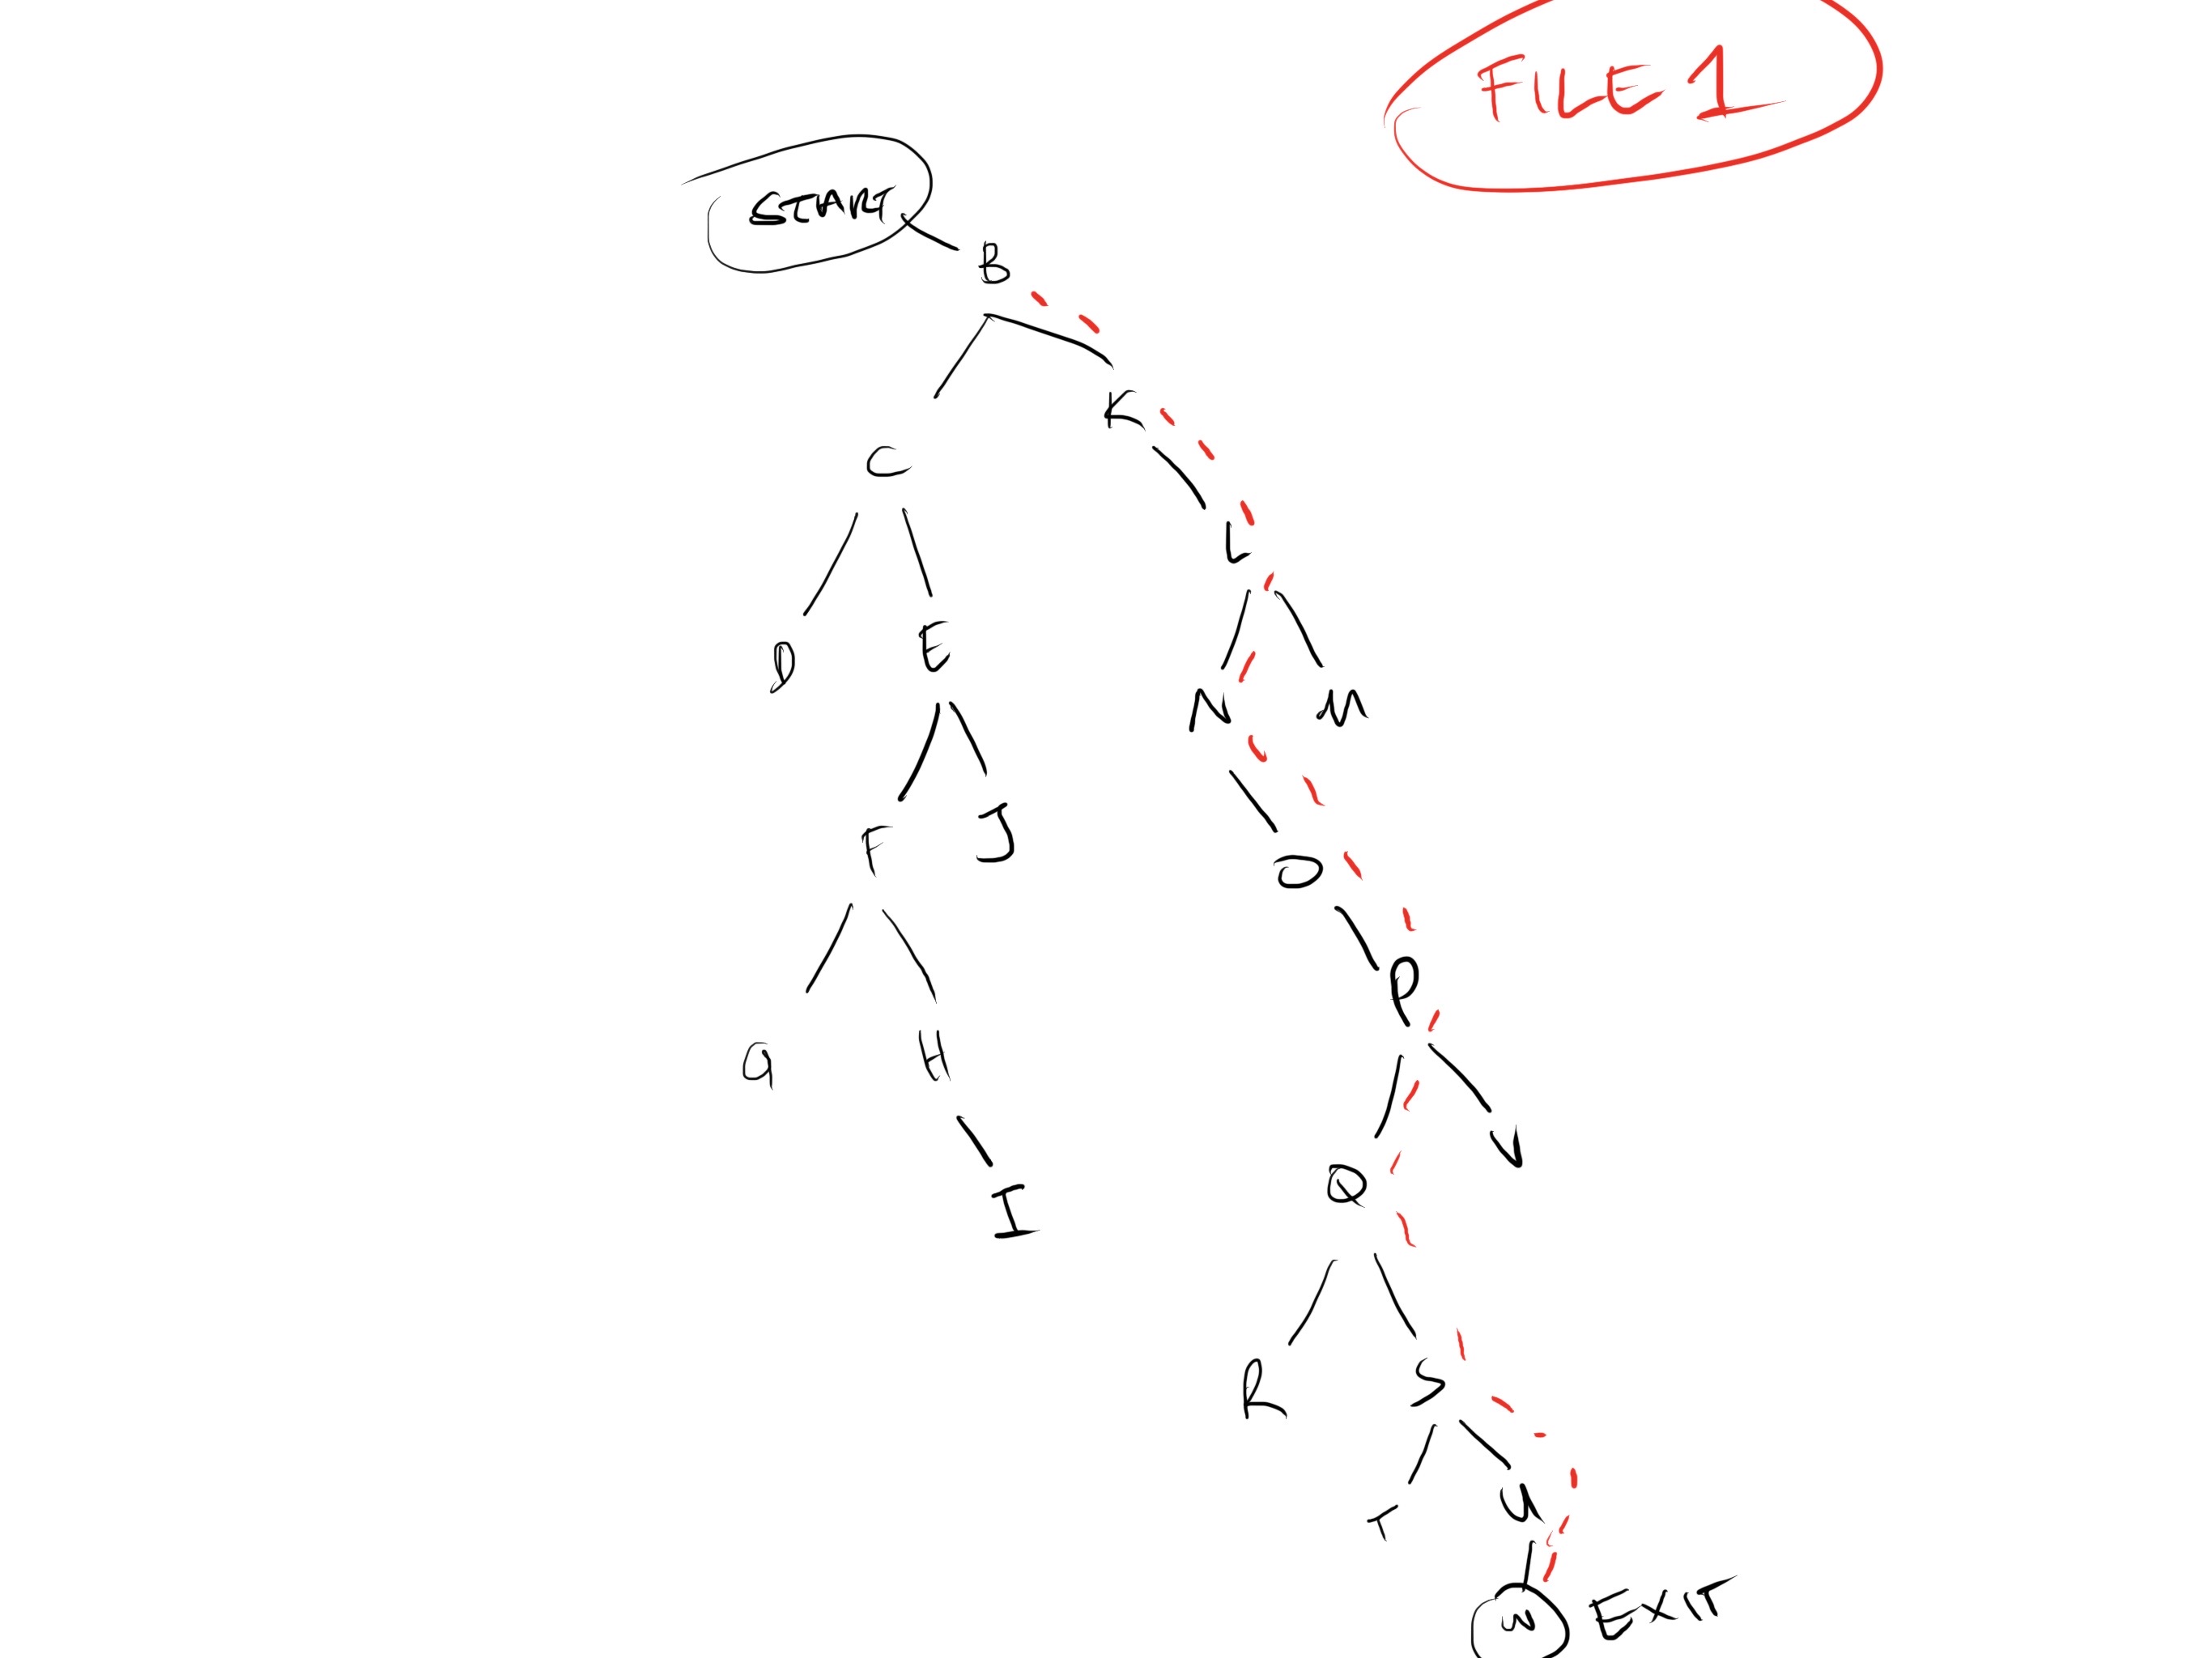 FILE 1
START
B
K
C
L
D
E
N
M
F
J
O
P
G
H
V
Q
I
R
S
T
U
W
EXIT